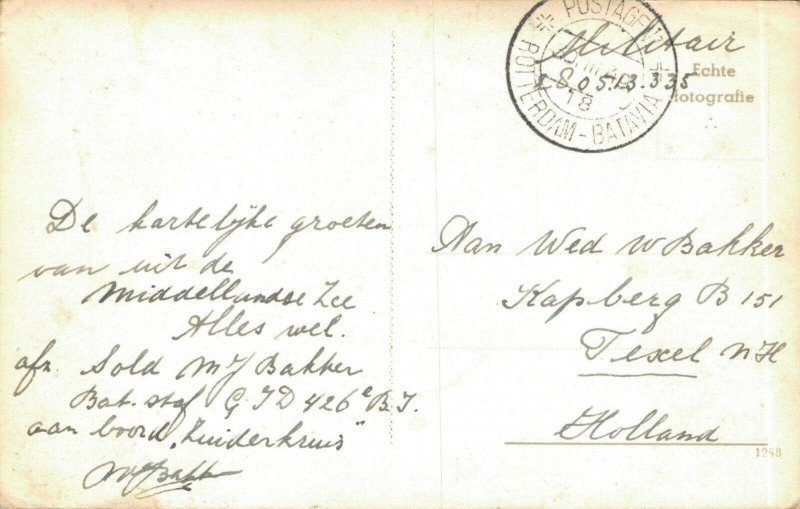 POSTAGENT
ROTTERDAM - BATAVIA
18
Militair
28.05.13.335
Echte
Fotografie
De hartelijke groeten
van uit de
Middellandse Zee
Alles wel.
afz. Sold M J Bakker
Bat. staf G I D 426e B.I.
aan boord „Zuiderkruis"
MJ Bakk
Aan Wed W Bakker
Kapberg B 151
Texel NH
Holland
1248